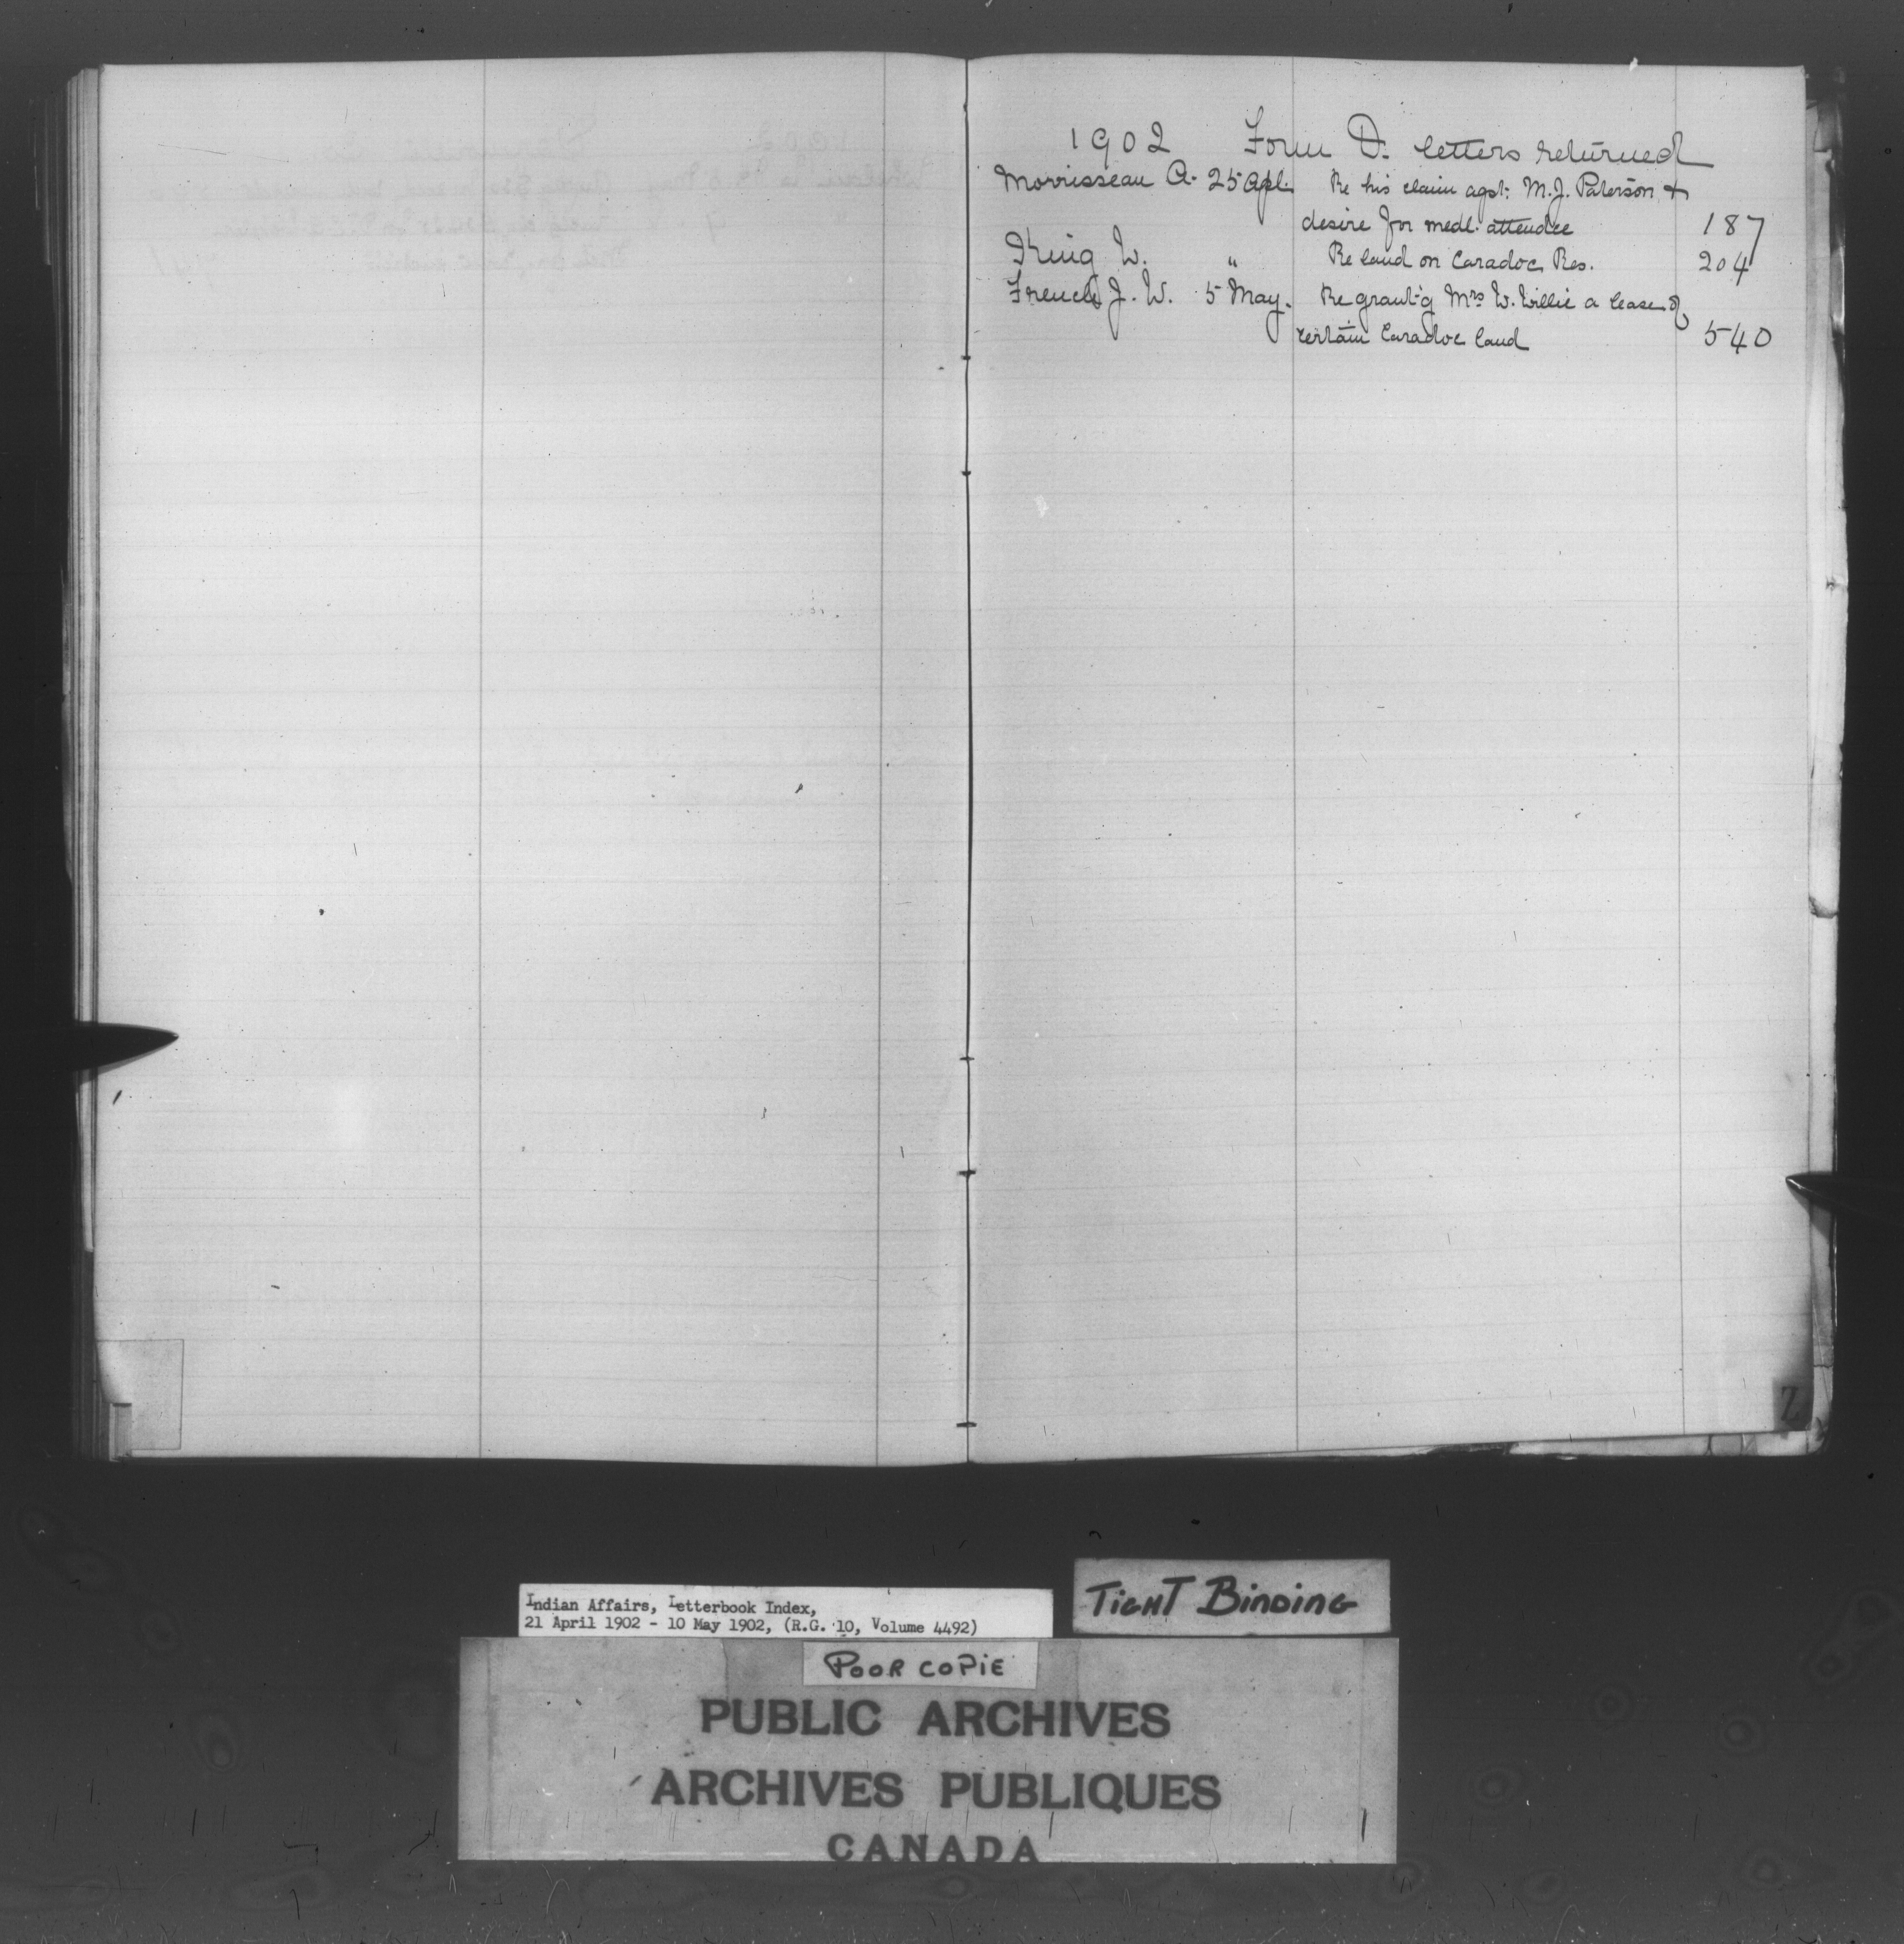 1902 Form D. letters returned
Morrisseau A. 25 Apl. Re his claim agst. M.J. Paterson +
desire for medl. attendce 187
King W. " Re land on Caradoc Res. 204
French J. W. 5 May. Re grant'g Mrs W. Willie a lease of
certain Caradoc land 540
Z
Indian Affairs, Letterbook Index,
21 April 1902 - 10 May 1902, (R.G. 10, Volume 4492)
TIGHT BINDING
POOR COPIE
PUBLIC ARCHIVES
ARCHIVES PUBLIQUES
CANADA